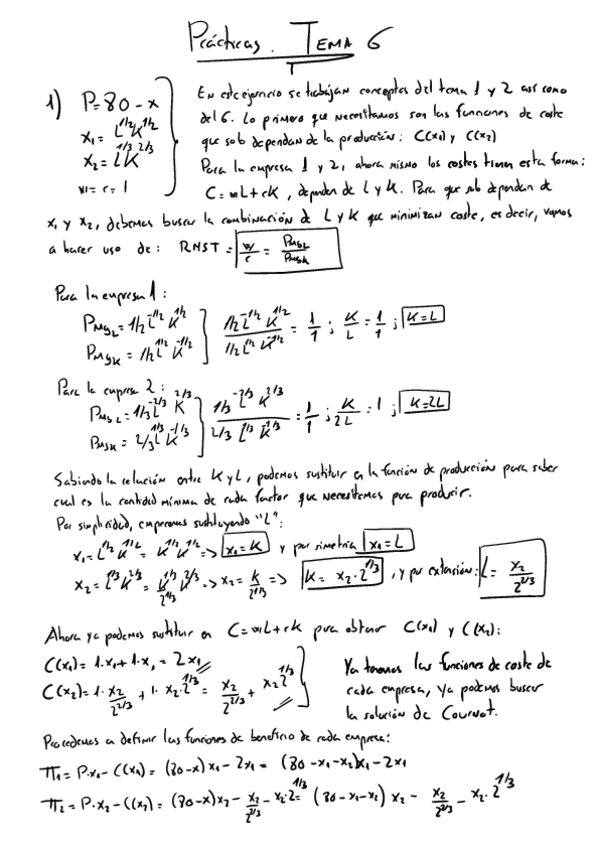 Prácticas. TEMA 6
1) P=80-x
x₁= L^1/2 K^1/2
x₂= L^1/3 K^2/3
w= r= 1
En este ejercicio se trabajan conceptos del tema 1 y 2 así como
del 6. Lo primero que necesitamos son las funciones de coste
que solo dependan de la producción: C(x₁) y C(x₂)
Para la empresa 1 y 2, ahora mismo los costes tienen esta forma:
C=wL+rK, dependen de L y K. Para que solo dependan de
x₁ y x₂, debemos buscar la combinación de L y K que minimizan coste, es decir, vamos
a hacer uso de: RMST = w/r = PMgL/PMgK
Para la empresa 1:
PMgL = 1/2 L^-1/2 K^1/2
PMgK = 1/2 L^1/2 K^-1/2
(1/2 L^-1/2 K^1/2)/(1/2 L^1/2 K^-1/2) = 1/1 ; K/L = 1/1 ; K=L
Para la empresa 2:
PMgL = 1/3 L^-2/3 K^2/3
PMgK = 2/3 L^1/3 K^-1/3
(1/3 L^-2/3 K^2/3)/(2/3 L^1/3 K^-1/3) = 1/1 ; K/2L = 1 ; K=2L
Sabiendo la relación entre K y L, podemos sustituir en la función de producción para saber
cual es la cantidad mínima de cada factor que necesitamos para producir.
Por simplicidad, empezamos sustituyendo "L":
x₁= L^1/2 K^1/2 = K^1/2 K^1/2 => x₁=K y por simetría x₁=L
x₂= L^1/3 K^2/3 = K^1/3/2^1/3 K^2/3 => x₂= K/2^1/3 => K= x₂·2^1/3, y por extensión: L= x₂/2^2/3
Ahora ya podemos sustituir en C=wL+rK para obtener C(x₁) y C(x₂):
C(x₁)= 1·x₁+1·x₁ = 2x₁
C(x₂)= 1·x₂/2^2/3 + 1·x₂·2^1/3 = x₂/2^2/3 + x₂2^1/3
Ya tenemos las funciones de coste de
cada empresa, ya podemos buscar
la solución de Cournot.
Procedemos a definir las funciones de beneficio de cada empresa:
Π₁= P·x₁-C(x₁)= (80-x)x₁-2x₁= (80-x₁-x₂)x₁-2x₁
Π₂= P·x₂-C(x₂)= (80-x)x₂- x₂/2^2/3 - x₂·2^1/3= (80-x₁-x₂)x₂- x₂/2^2/3 - x₂·2^1/3